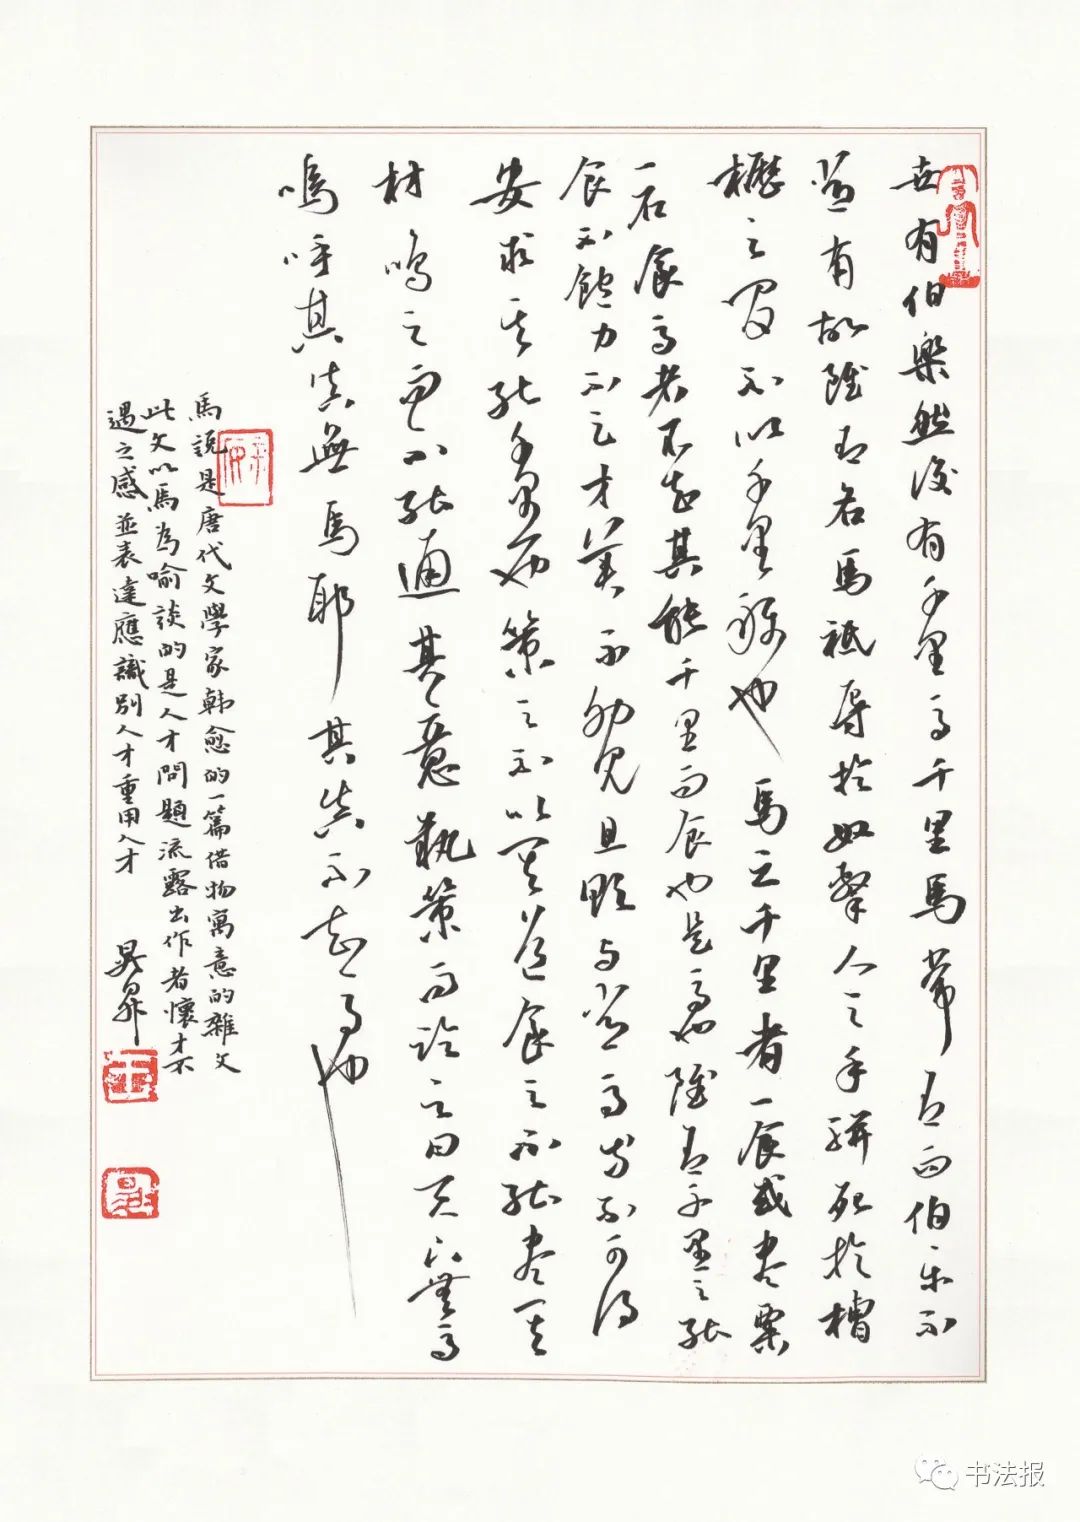 世有伯樂然後有千里馬千里馬常有而伯乐不
常有故雖有名馬祗辱於奴隸人之手駢死於槽
櫪之間不以千里稱也馬之千里者一食或盡粟
一石食馬者不知其能千里而食也是馬也雖有千里之能
食不飽力不足才美不外見且欲与常馬等不可得
安求其能千里也策之不以其道食之不能盡其
材鳴之而不能通其意執策而臨之曰天下無馬
嗚呼其真無馬耶其真不知馬也
馬說是唐代文學家韩愈的一篇借物寓意的雜文
此文以馬為喻談的是人才問題流露出作者懷才不
遇之感並表達應識別人才重用人才
晁昇
书法报